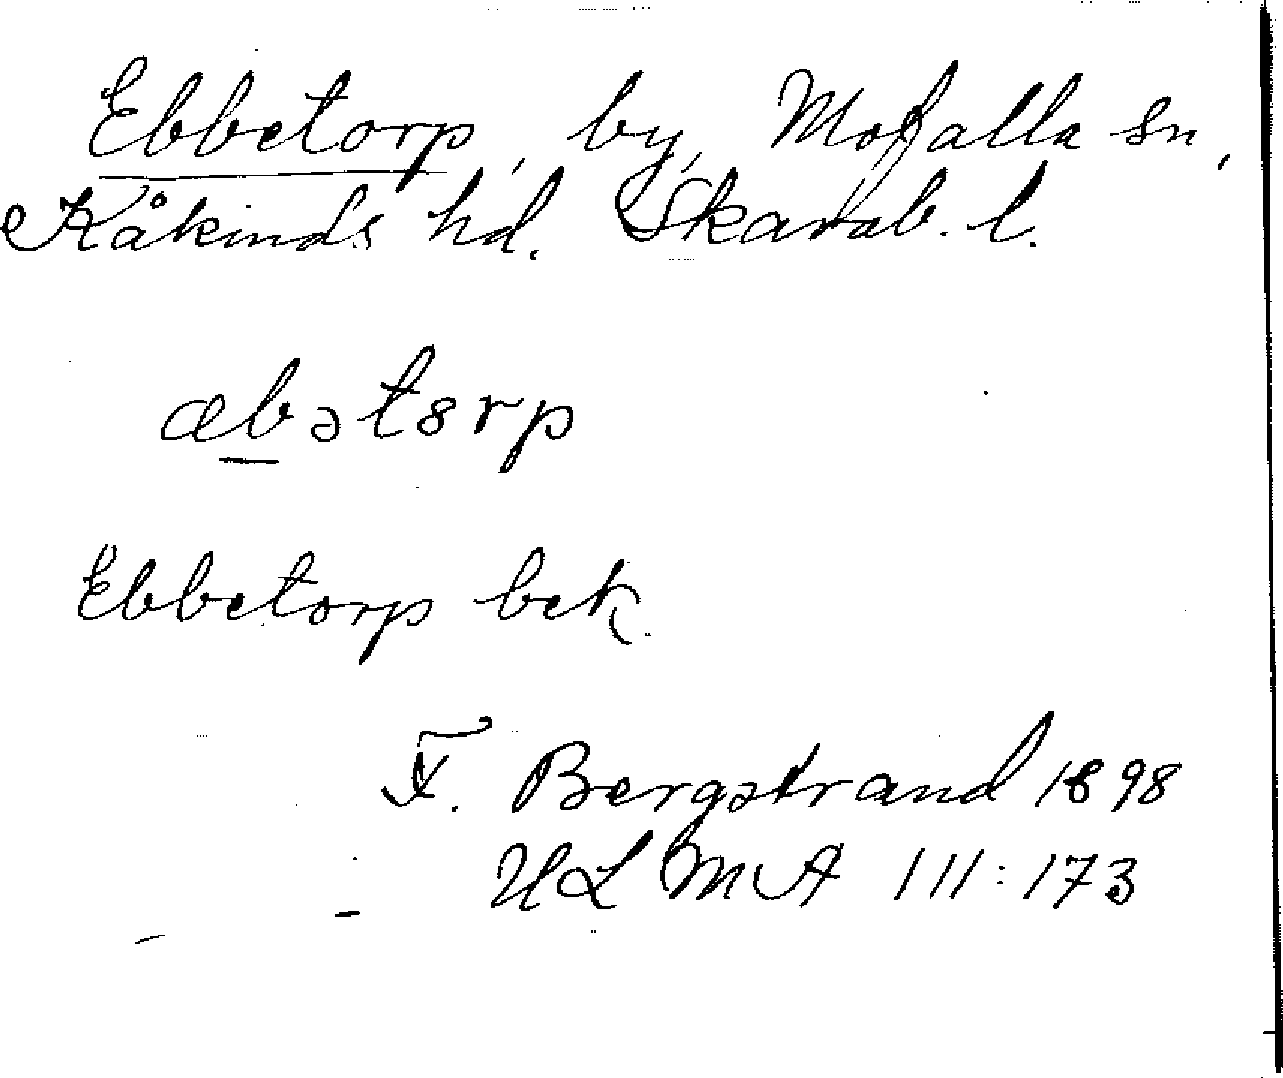 Ebbetorp, by, Mofalla sn,
Kåkinds hd. Skarab. l.
æbətɘrp
Ebbetorp bek.
F. Bergstrand 1898
ULMA 111:173